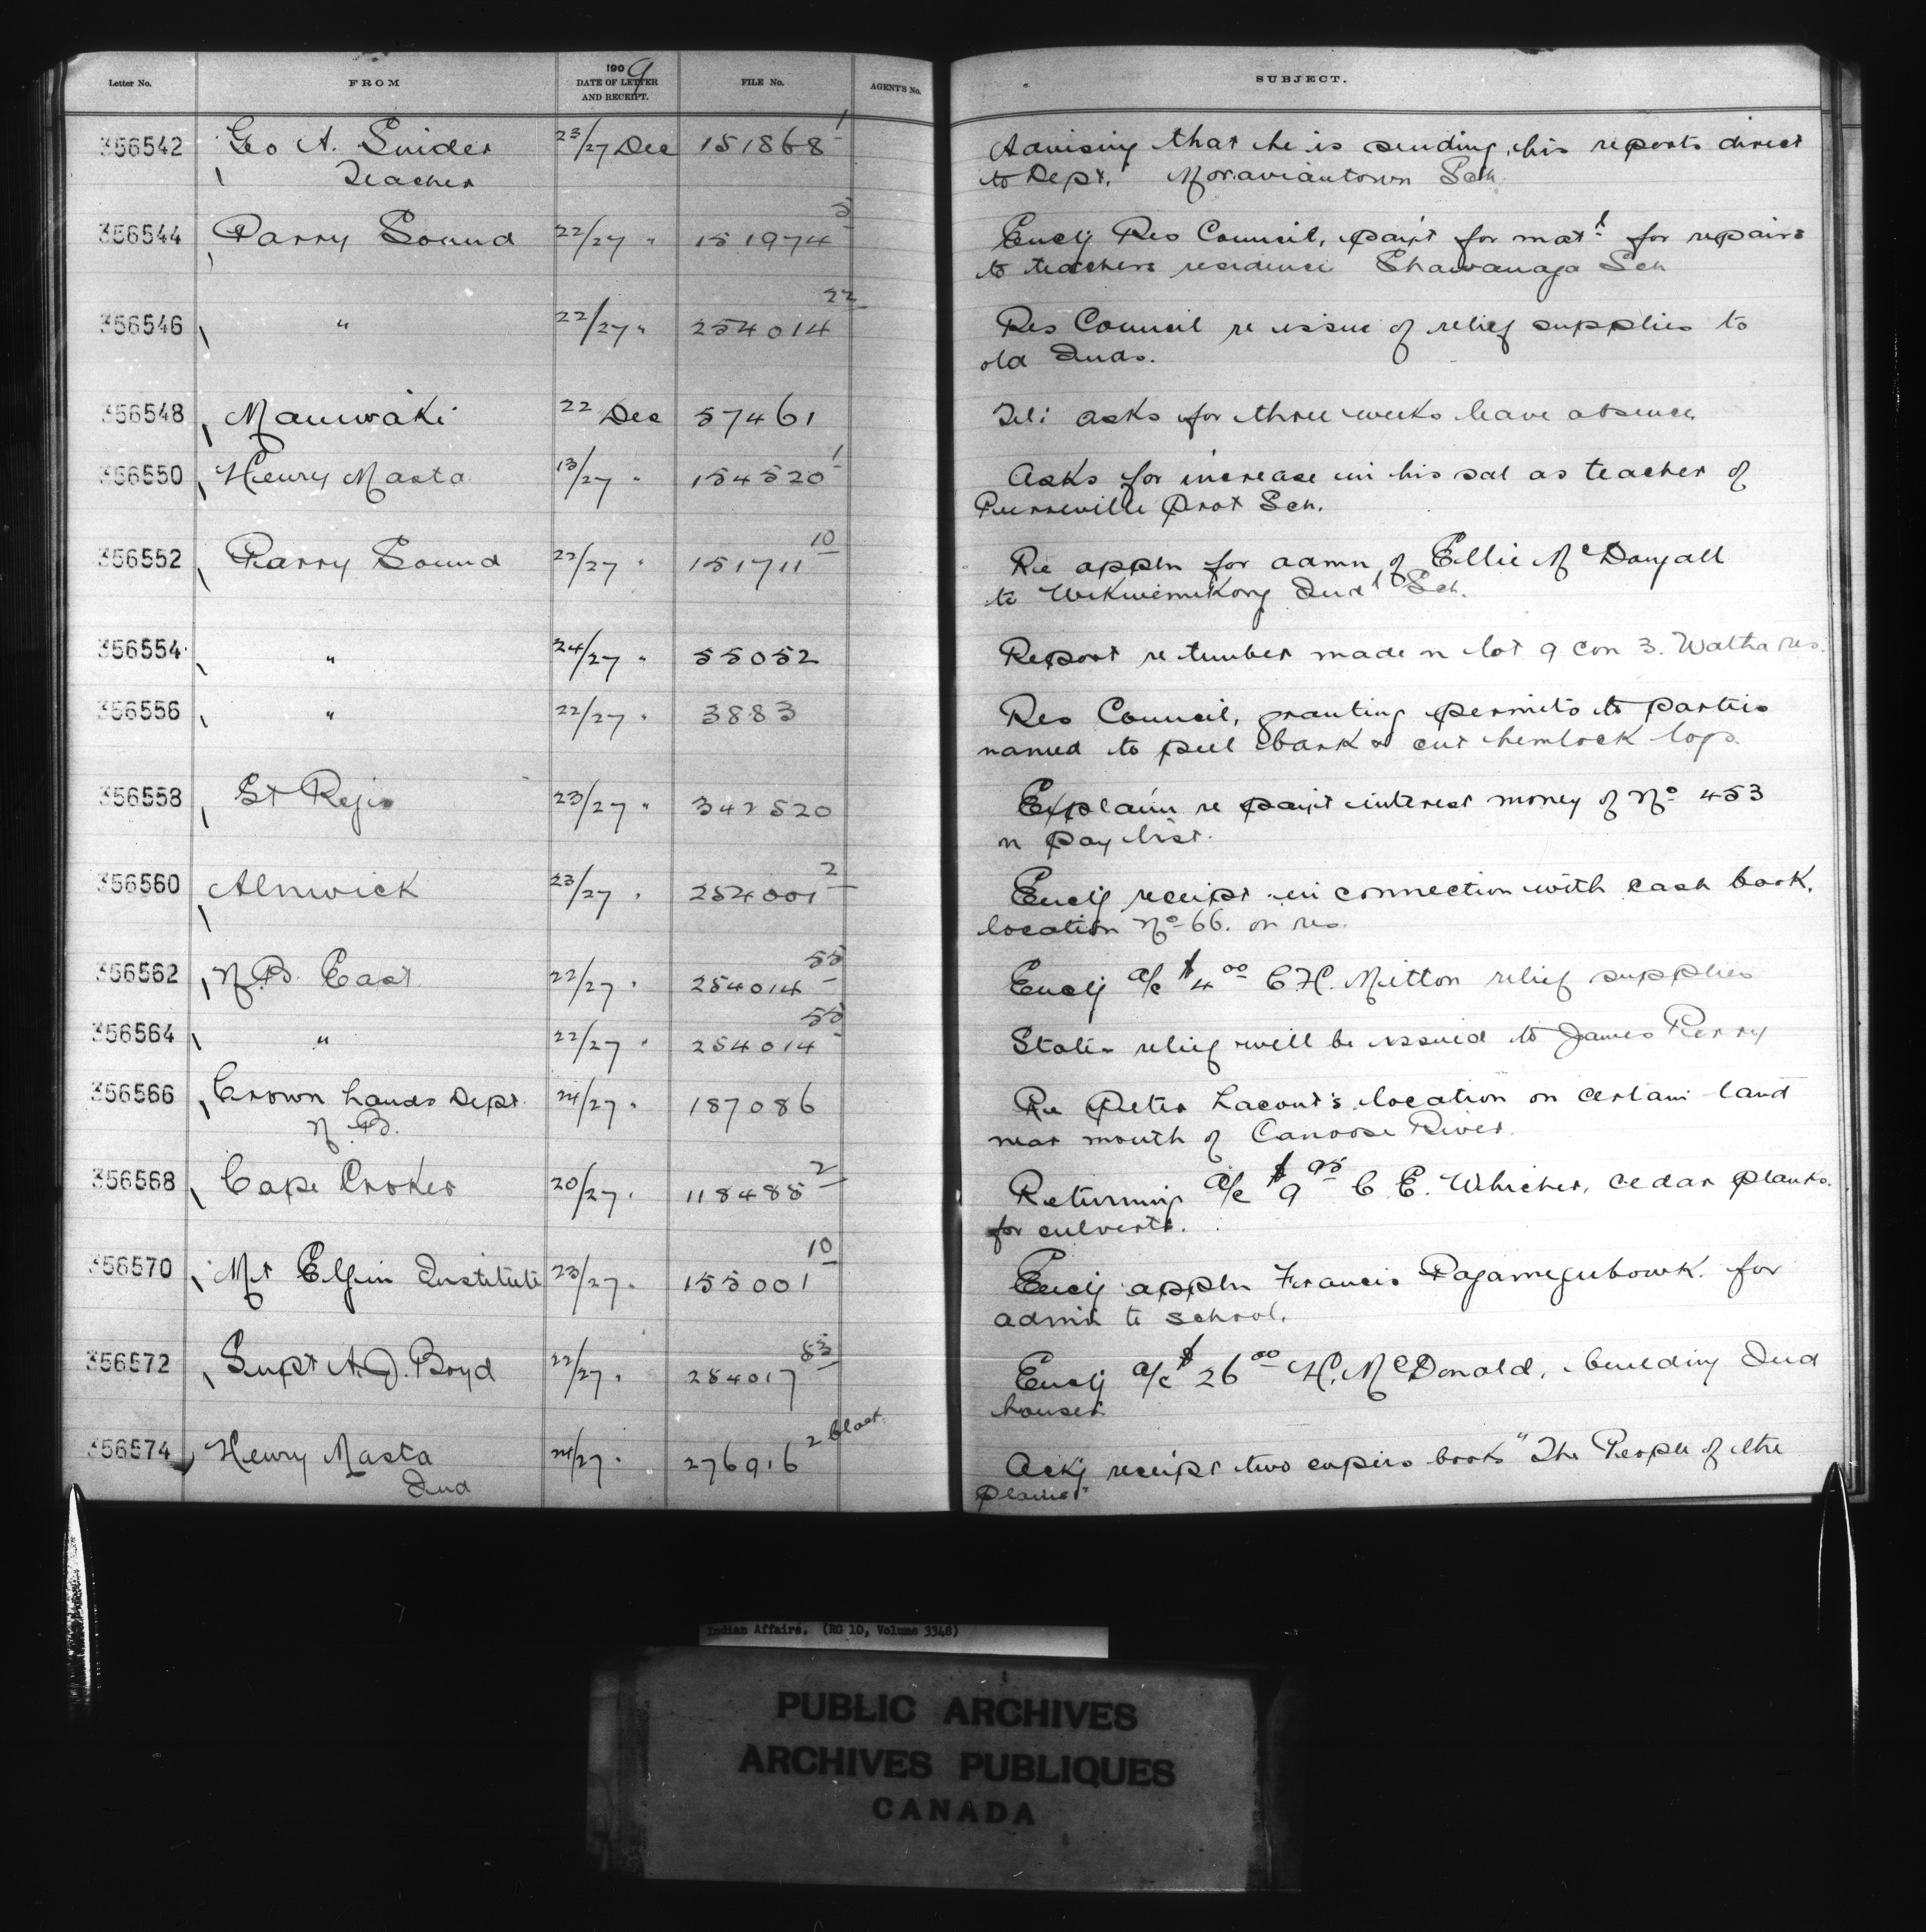 Letter No. FROM 1909 DATE OF LETTER AND RECEIPT. FILE No. AGENT'S No. SUBJECT.
356542 Geo A. Snider 23/27 Dec 151868-1 Advising that he is sending his reports direct
Teacher to Dept. Moraviantown Sch.
356544 Parry Sound 22/27 " 151974-5 Encl'g Res Council, paym't for mat'l for repairs
to teachers residence Shawanaga Sch
356546 " 22/27 " 254014-22 Res Council re issue of relief supplies to
old Inds.
356548 Maniwaki 22 Dec 57461 Tel: asks for three weeks leave absence
356550 Henry Masta 13/27 " 154520-1 Asks for increase in his sal as teacher of
Pierreville Prot Sch.
356552 Parry Sound 22/27 " 151711-10 Re appln for admn of Ellie McDougall
to Wikwemikong Ind'l Sch.
356554 " 24/27 " 55052 Report re timber made on lot 9 con 3. Watha res.
356556 " 22/27 " 3883 Res Council, granting permits to parties
named to peel bark & cut hemlock logs.
356558 St Regis 23/27 " 342520 Explain re paym't interest money of No 453
on pay list.
356560 Alnwick 23/27 " 254001-2 Encl'g receipt in connection with cash book,
location No 66. on res.
356562 N.B. East 22/27 " 254014-55 Encl'g a/c $4.00 C.H. Mitton relief supplies
356564 " 22/27 " 254014-55 States relief will be issued to James Perry
356566 Crown Lands Dept. 24/27 " 187086 Re Peter Lacout's location on certain land
N.B. near mouth of Canoose River.
356568 Cape Croker 20/27 " 118485-2 Returning a/c $9.95 C.E. Whicher, cedar planks
for culverts.
356570 Mt Elgin Institute 23/27 " 155001-10 Encl'g appln Francis Pagamegubowk for
admin to school.
356572 Supt A.J. Boyd 22/27 " 254017-83 Encl'g a/c $26.00 H. McDonald, building Ind
houses
356574 Henry Masta 24/27 " 276916-2 Ack'g receipt two copies book "The People of the
Ind plains"
Indian Affairs. (RG 10, Volume 3348)
PUBLIC ARCHIVES
ARCHIVES PUBLIQUES
CANADA